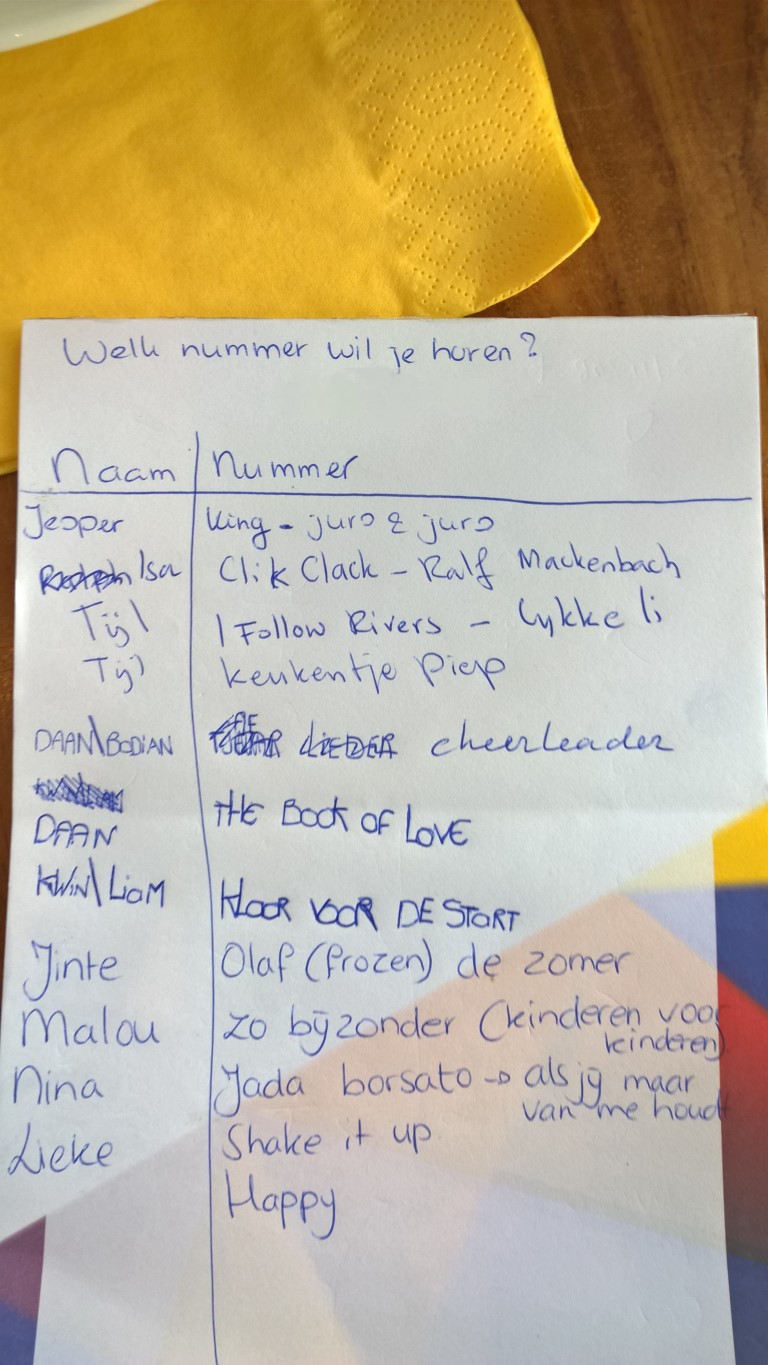 Welk nummer wil je horen?
Naam | Nummer
Jesper King - juro & juro
Isa Clik Clack - Ralf Mackenbach
Tijl I Follow Rivers - Lykke li
Tijl keukentje Piep
DAAN\BODiAN LiEDER cheerleader
DAAN tHE BOOK OF LOVE
KWiN\LiaM KLAAR VOOR DE START
Jinte Olaf (frozen) de zomer
Malou zo bijzonder (kinderen voor
kinderen)
Nina Jada borsato → als jij maar
van me houdt
Lieke Shake it up
Happy